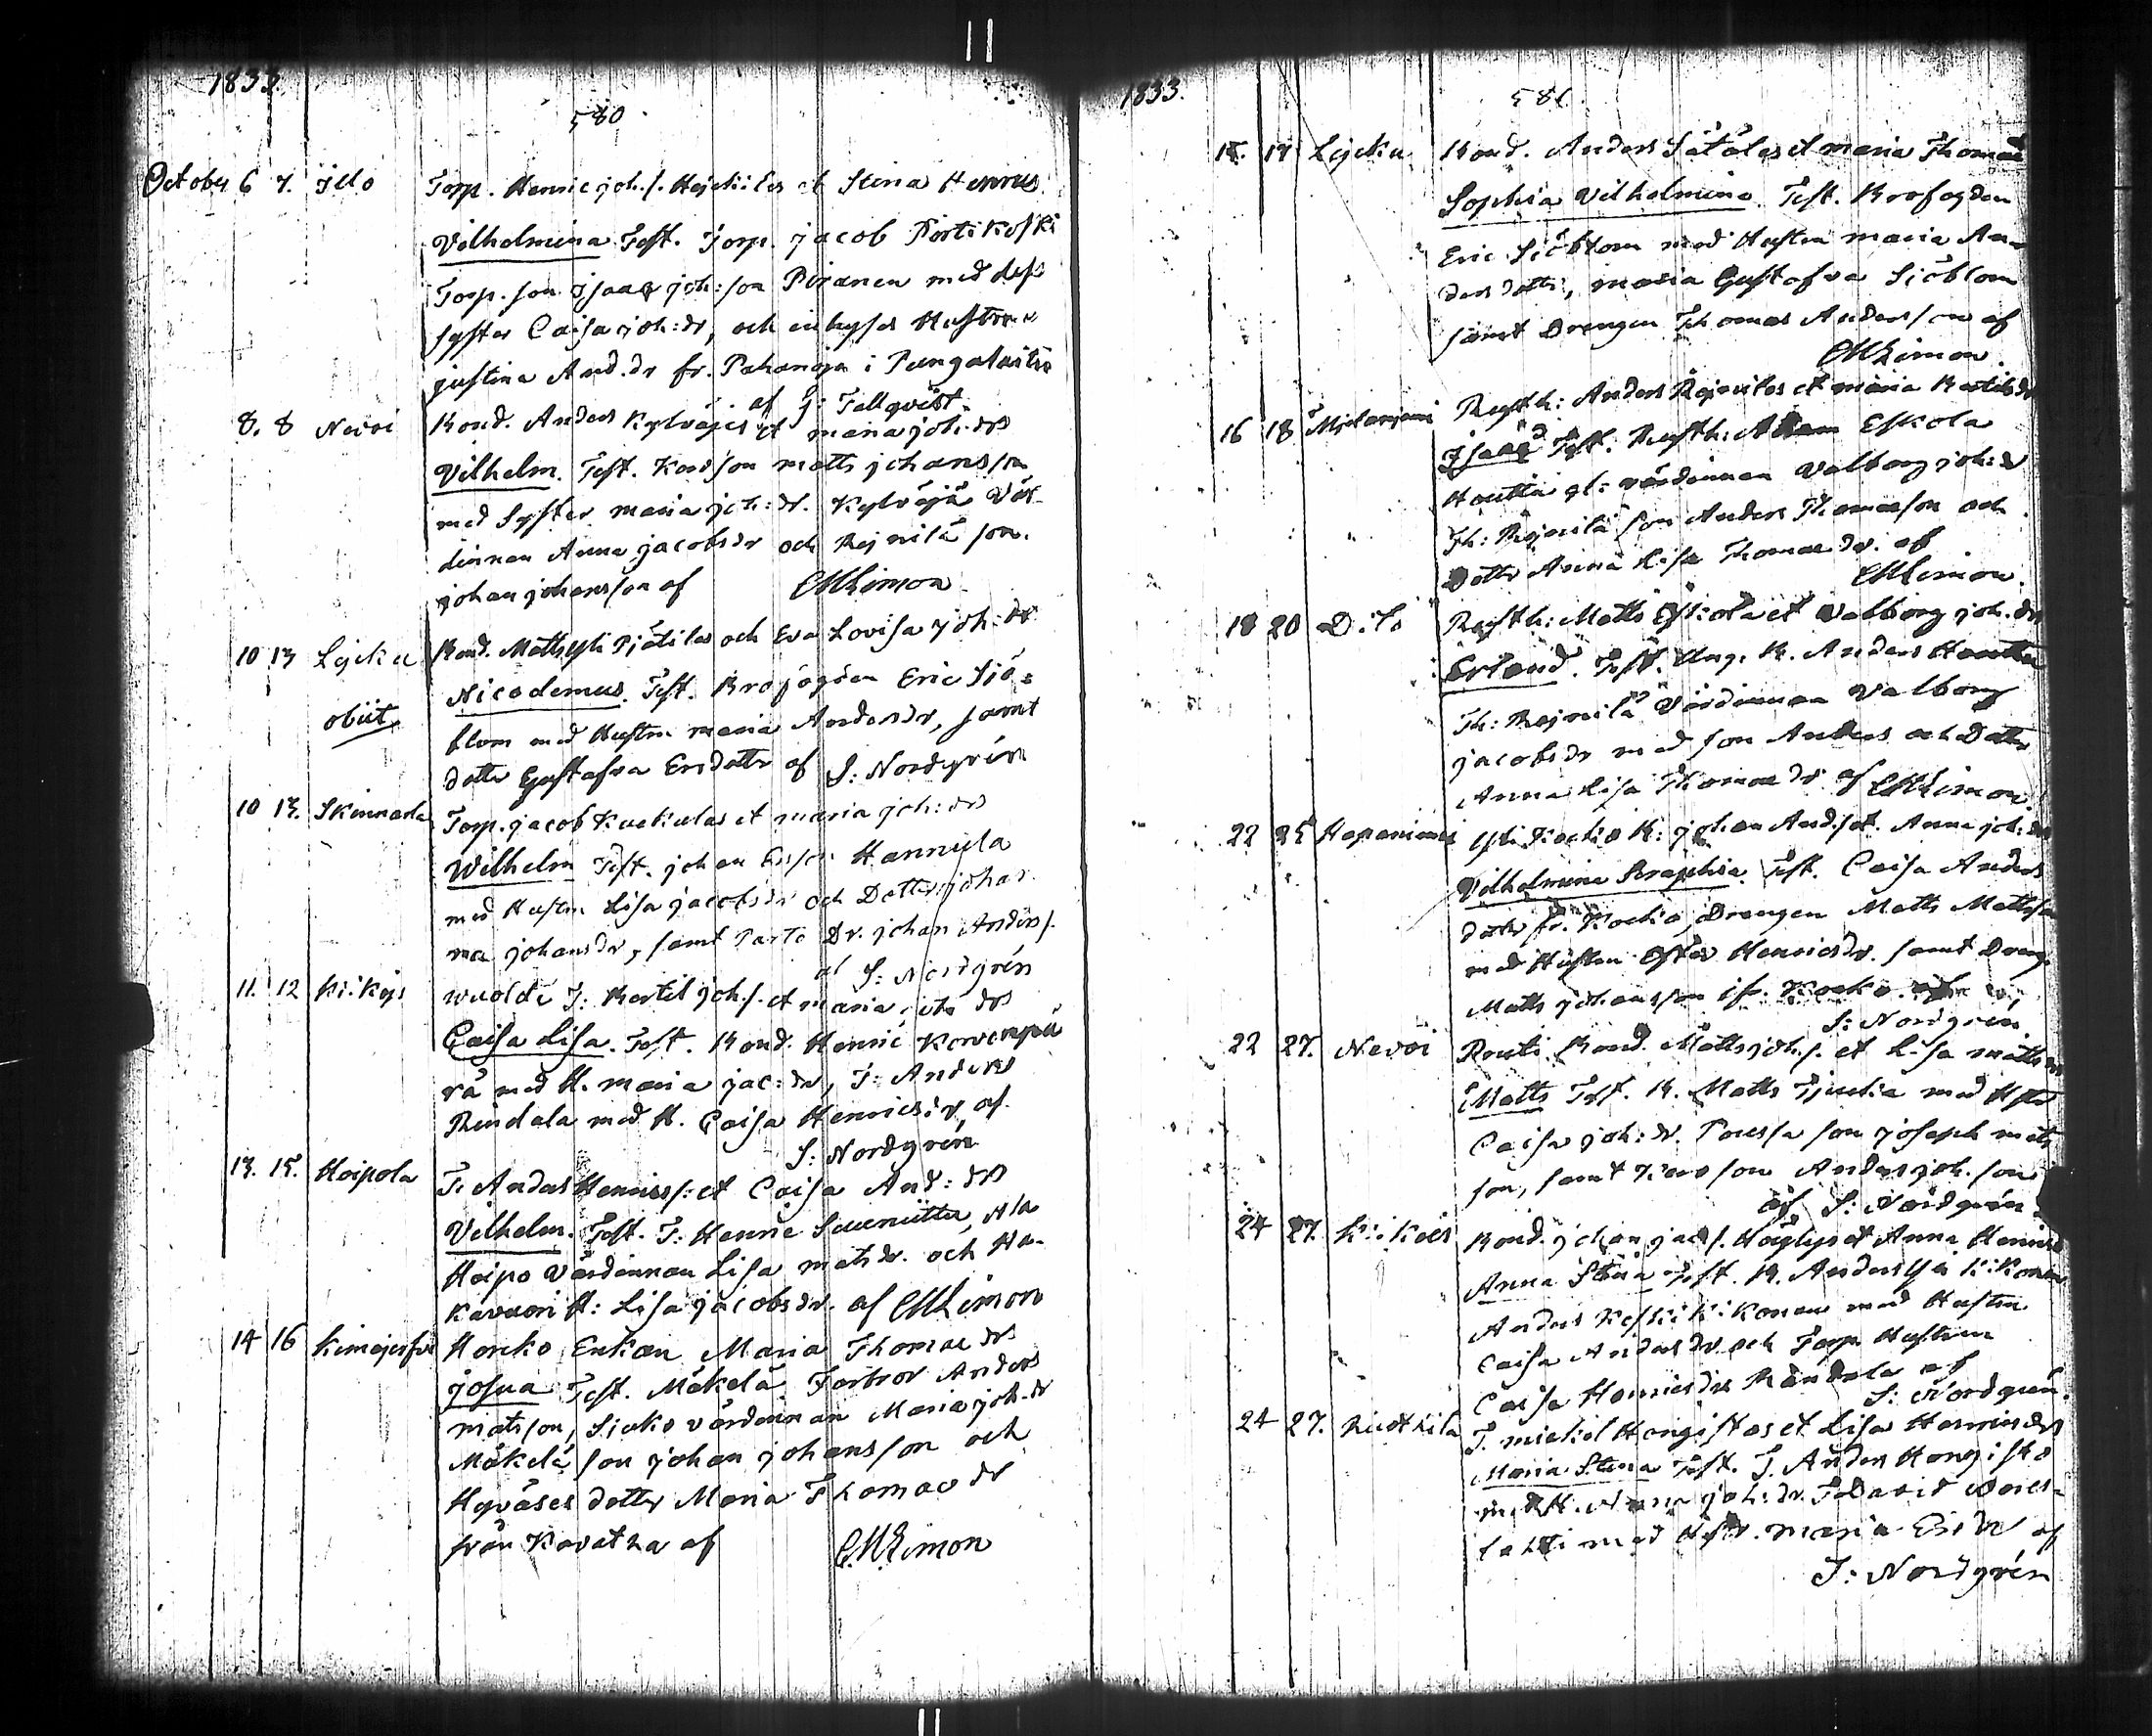 1833.
580.
October 6 7. Jllo Torp. Henric joh.s. Hejckiles et Stina Henrics
Vilhelmina Test. Torp. jacob Pörtikoski
Torp. son jsaac joh:son Piranen med dess
syster Caisa joh:dr, och inhyses Hustrun
justina And.dr fr. Pahanoja i Pungalaitio
af G: Tallqvist.
8. 8 Nevoi Bond. Anders Kylväjes et maria joh:dr
Vilhelm. Test. Kard son matts johansson
med Syster maria joh:dr. Kylväjä Vär-
dinnan Anna jacobsdr och Rejnilä son.
johan johansson af CMLimon
10 13 Lejcku Bond. Matts yli Pjätilas och Eva Lovisa joh:dr
obiit
Nicodemus. Test. Brofogden Eric Sjö=
blom med Hustru maria Andersdr, samt
dotter Gustafva Ersdotter af S: Nordgrén
10 13. Skinnarla Torp. jacob Kuckulas et maria joh:dr
Wilhelm Test. johan Ersson Hannula
med Hustru Lisa jacobsdr och Dotter johan
na johansdr, samt Parto Dr. johan Anders s.
af S: Nordgrén
11. 12 Kikois wuolde T: Bertil joh.s. et maria joh:dr
Caisa Lisa. Test. Bond. Henric Korvenpää
rä med H. maria jac:dr, T: Anders
Rindala med H. Caisa Henricsdr af
S: Nordgrén
13. 15. Hoipola T: Anders Henricss: et Caisa And:dr
Vilhelm. Test. T: Henric Suuniitty, Ala
Hoipo Värdinnan Lisa matsdr. och Ha-
kavuori H: Lisa jacobsdr. af CMLimon
14 16 Kimojerfvi Horcko Enkan Maria Thomaedr
josua Test. Mäkelä Farbror Anders
matsson, Sjuko värdinnan Maria joh.dr
Mäkelä son johan johansson och
Hyväses dotter Maria Thomaedr
från Kovatka af CMLimon
1833.
581.
15. 17 Lejcku Bond. Anders Sätäles et maria Thomae
Sophia Vilhelmina Test. Brofogden
Eric Sjöblom med Hustru maria An-
ders dotter, maria Gustafva Sjöblom
samt Drengen Thomas Andersson af
CMLimon.
16 18 Mjelonjemi Rusth: Anders Rejniles et maria Bertilsdr
jsaac Test. Rusth: Adam Eskola
Houttu gl: värdinnan Valborg joh:dr
Th: Rejnilä son Anders Thomasson och
Dotter Anna Lisa Thomaedr. af
CMLimon.
18 20 Dito Rusth: Matts Eskola et Valborg joh.dr
Erland. Test. Ung. K. Anders Houttu
Th: Rejnilä Värdinnan Valborg
jacobsdr med son Anders och Dotter
Anna Lisa Thomaedr af CMLimon.
22 25 Hapaniemi Yli Kockio B: johan Ands. et. Anna joh:dr
Vilhelmina Seraphia. Test. Caisa Anders
dotter fr. Kockio, Drengen Matts Mattsson
med Hustru Ester Henricsdr. samt Dreng
Matts johansson fr. Kocko. af
S: Nordgren.
22 27. Nevoi Routi Bond. Matts joh.s. et Lisa mattsdr
Matts Test. B. Matts Tjuckia med Hstr
Caisa joh:dr. Poussa son joseph mats
son, samt Karo son Anders joh.son
af S: Nordgrén
24 27. Kikois Bond. johan jacs. Höylys et Anna Henricsd
Anna Stina Test. B. Anders Yli Kikonen
Anders Keski Kikonen med Hustru
Caisa Andersdr och Torp. Hustrun
Caisa Henricsdr Rändala af
S: Nordgrén.
24 27. Riuttila T. mickel Hongistos et Lisa Henricsdr
Maria Stina Test. T. Anders Hongisto
med H. Anna joh:dr. T. David Vares-
lahti med Hstr. maria Ersdr af
S: Nordgrén